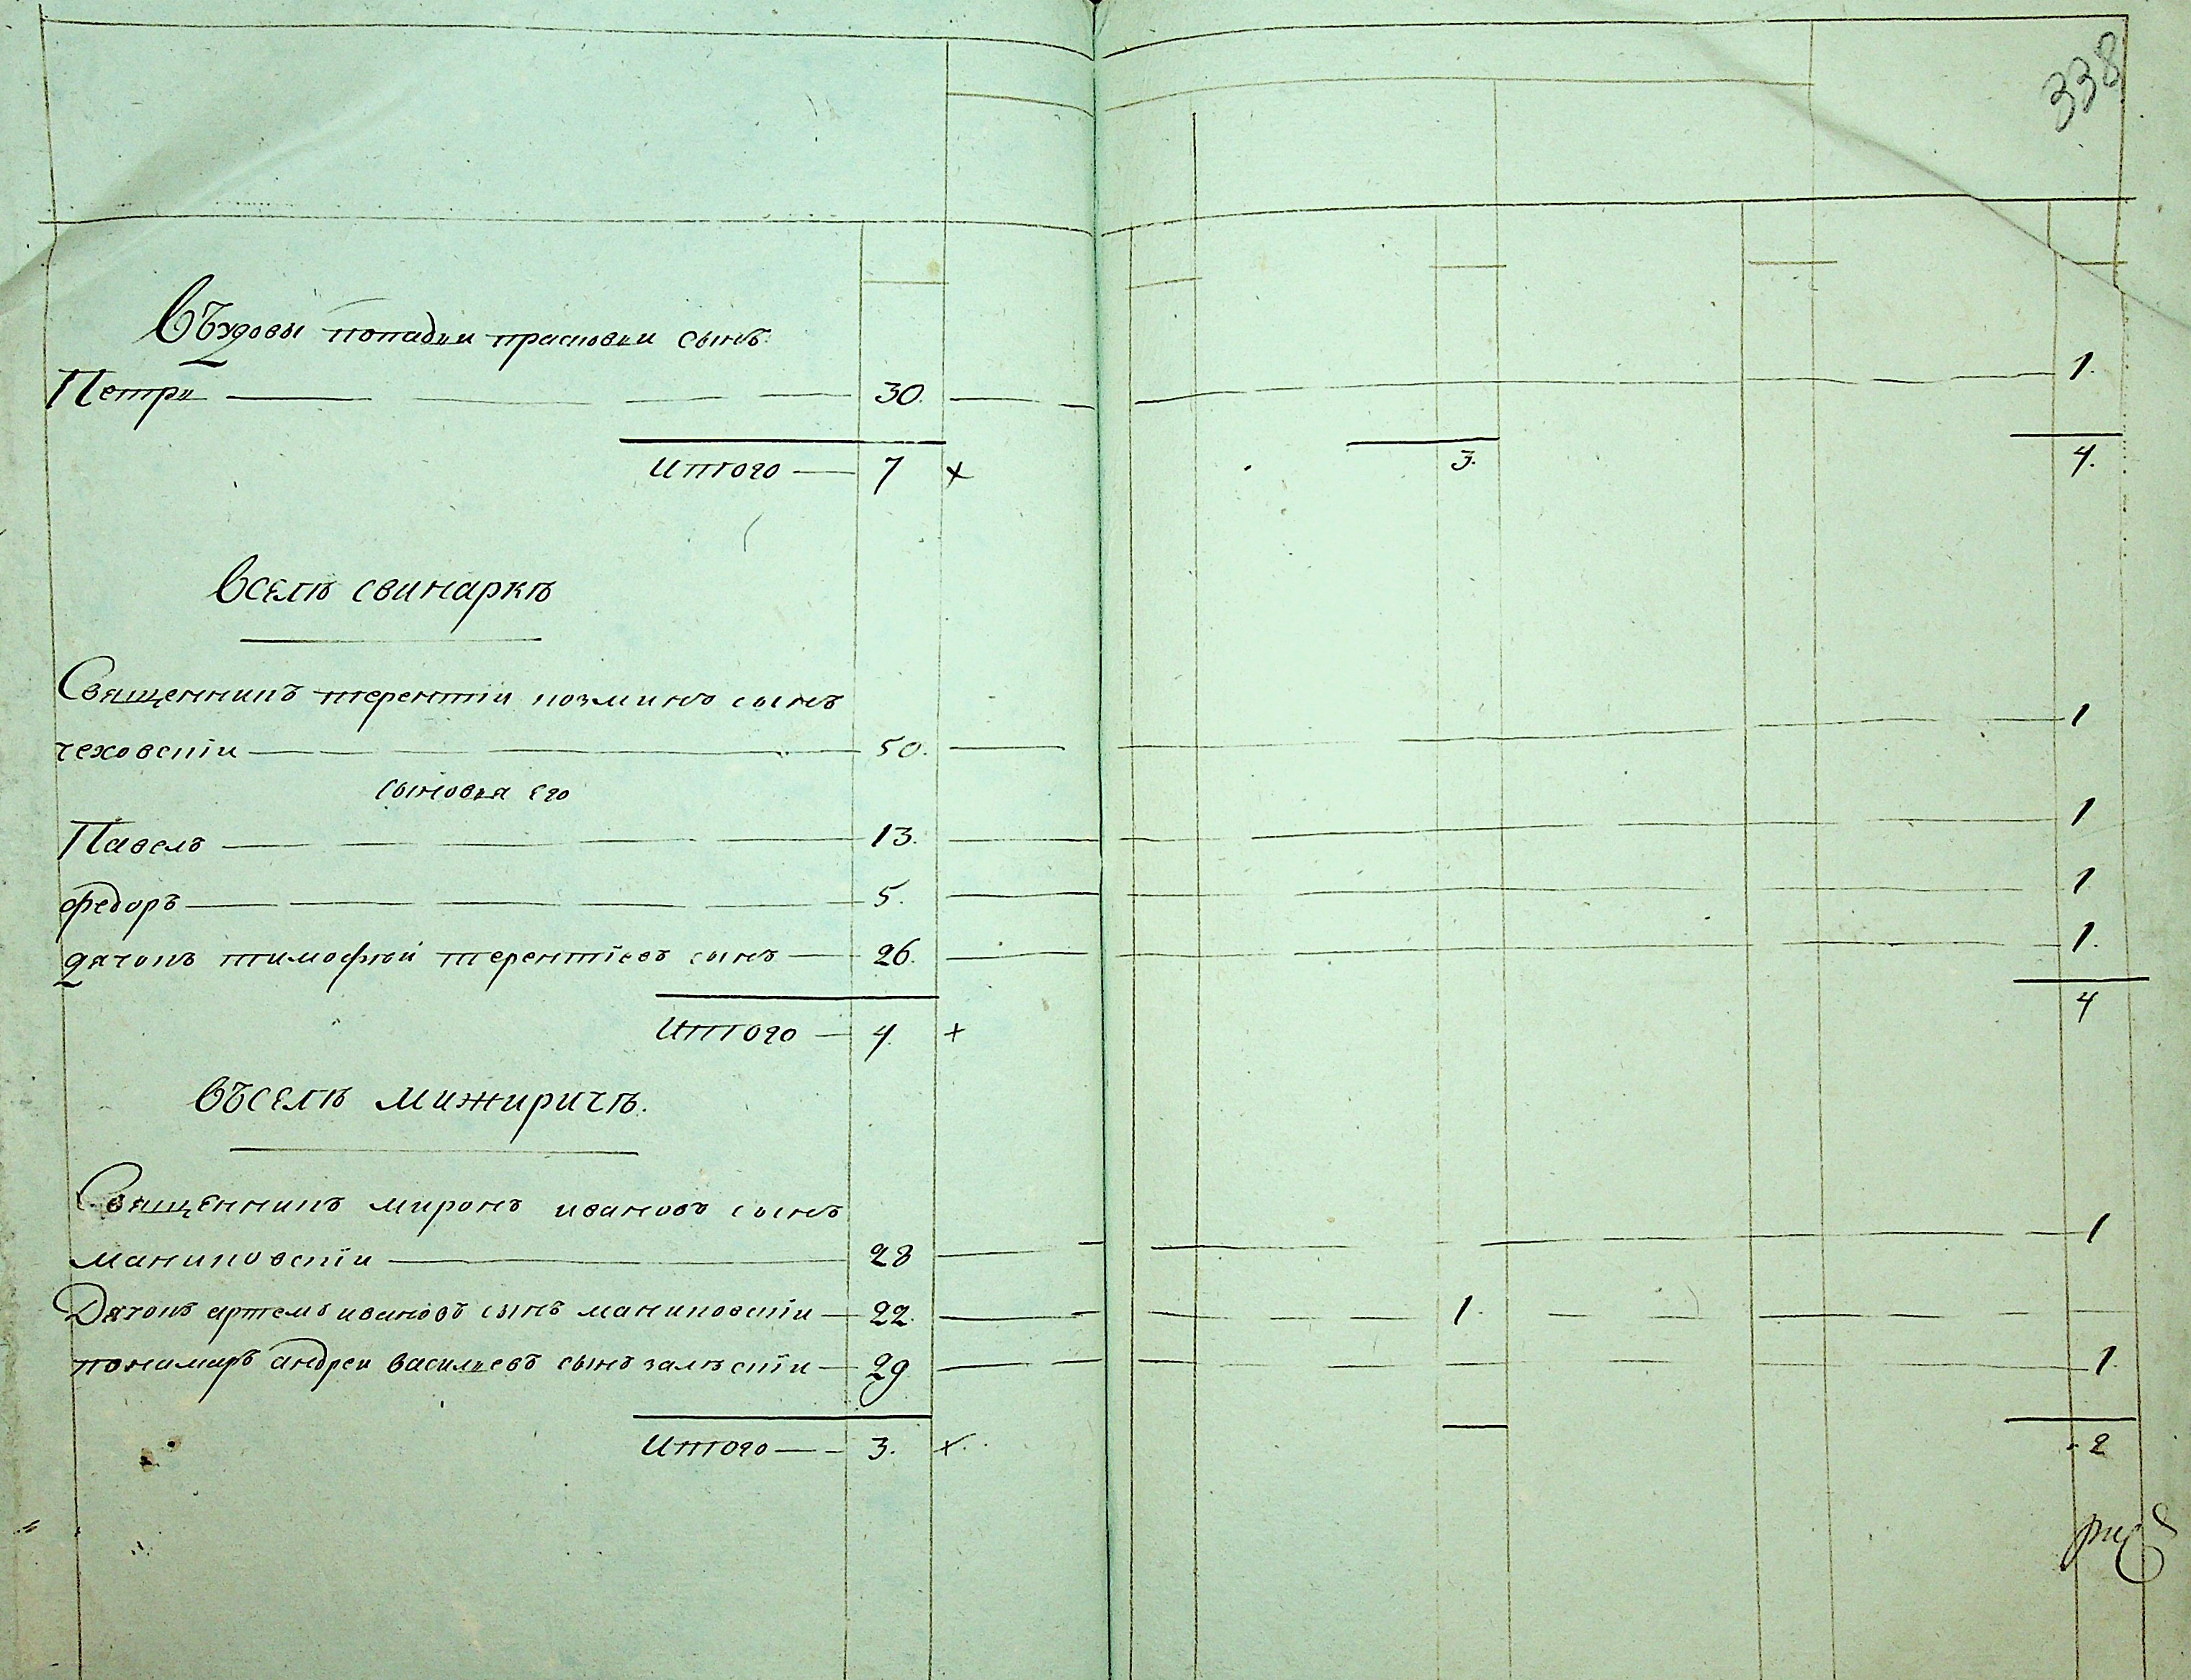 338
Въдовы попадки прасковки сынъ
Петри 30. 1.
Итого 7 х 3. 4.
Вселѣ свинаркѣ
Священникъ терентіи козминъ сынъ
чеховскіи 50. 1
сыновя его
Павелъ 13. 1
федоръ 5. 1
дячокъ тимофѣй терентіевъ сынъ 26. 1.
Итого 4. х 4
Въселѣ мижиричѣ.
Священникъ миронъ ивановъ сынъ
маниковскіи 28 1
Дячокъ артемъ ивановъ сынъ маниковскіи 22. 1.
пономарь андреи васильевъ сынъ залѣскіи 29 1.
Итого 3. х. 2